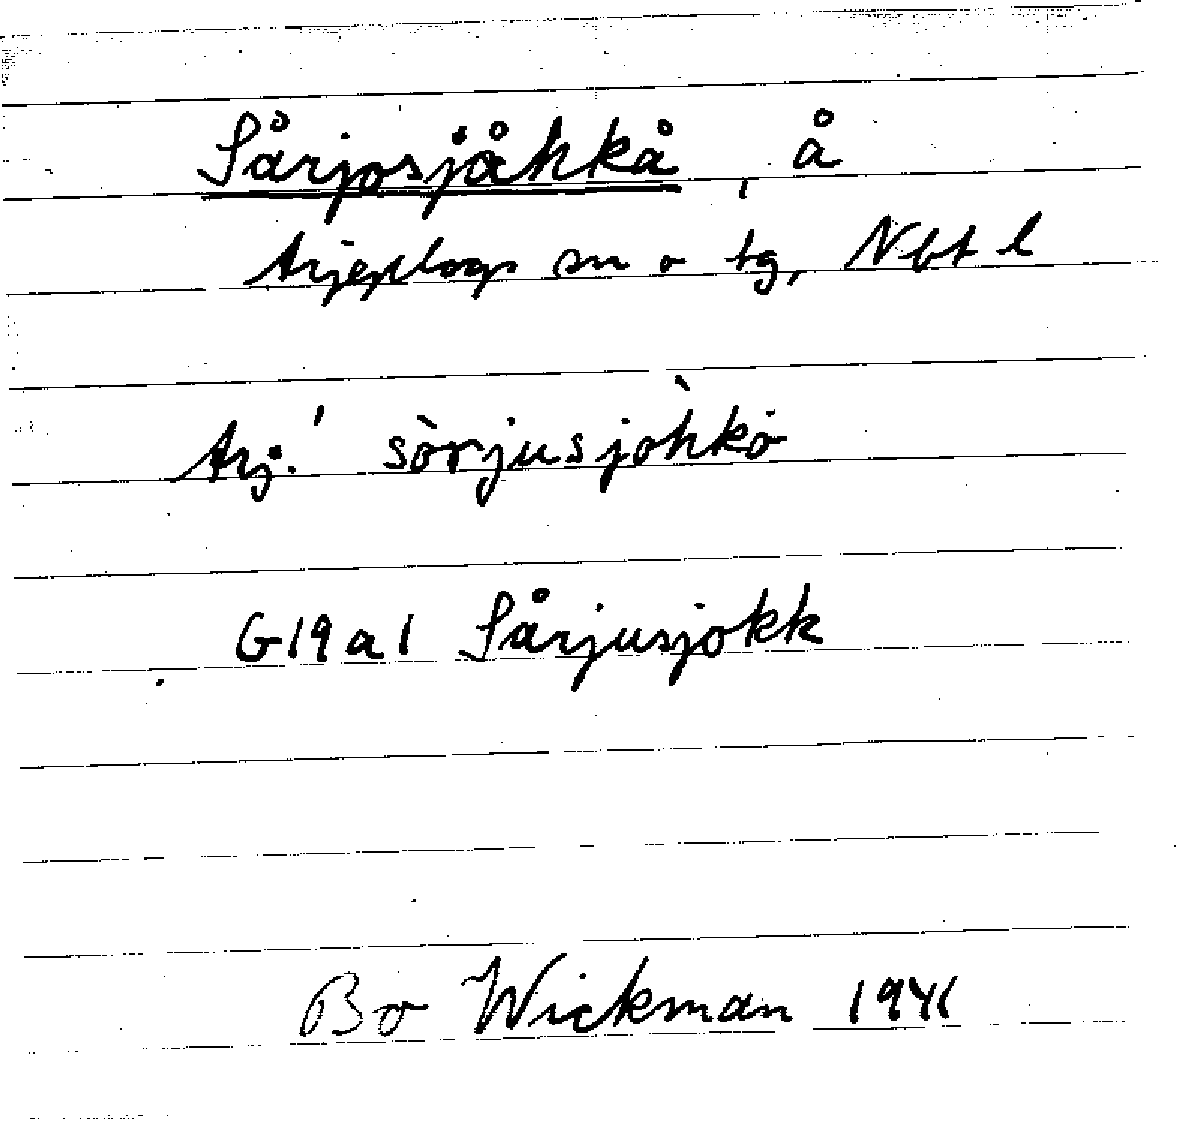 Sårjosjåhkå, å
Arjeplogs sn o tg, Nbt l
Arj. ' sòrjusjòhkȯ
G19a1 Sårjusjokk
Bo Wickman 1941